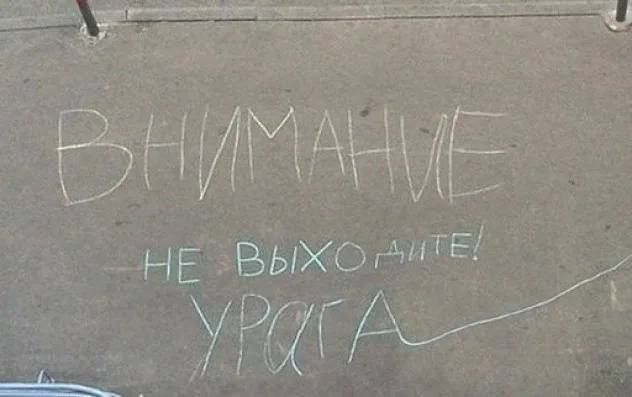 ВНИМАНИЕ
НЕ ВЫХОДИТЕ!
УРАГА